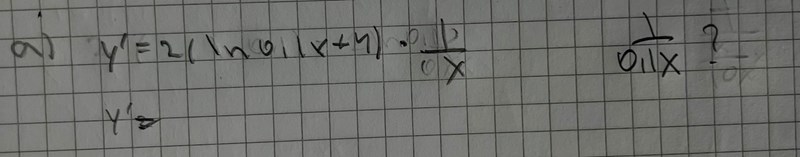 a) y' = 2(ln 0,1x+4) · 0,1/x 1/0,1x ?
y' =